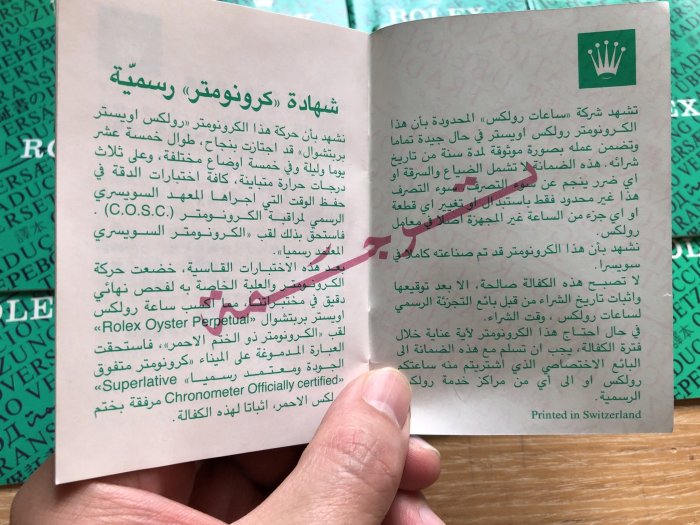 تشهد شركة «ساعات رولكس» المحدودة بأن هذا
الكرونومتر رولكس اويستر في حال جيدة تماما
وتضمن عمله بصورة موثوقة لمدة سنة من تاريخ
شرائه. هذه الضمانة لا تشمل الضياع والسرقة او
اي ضرر ينجم عن سوء التصرف. سوء التصرف
هذا غير محدود فقط باستبدال او تغيير اي قطعة
او اي جزء من الساعة غير المجهزة اصلا في معامل
رولكس.
نشهد بأن هذا الكرونومتر قد تم صناعته كاملا في
سويسرا.
لا تصبح هذه الكفالة صالحة، الا بعد توقيعها
واثبات تاريخ الشراء من قبل بائع التجزئة الرسمي
لساعات رولكس ، وقت الشراء.
في حال احتاج هذا الكرونومتر لأية عناية خلال
فترة الكفالة، يجب ان تسلم مع هذه الضمانة الى
البائع الاختصاصي الذي اشتريتم منه ساعتكم
رولكس او الى أي من مراكز خدمة رولكس
الرسمية.
Printed in Switzerland
شهادة «كرونومتر» رسميّة
نشهد بأن حركة هذا الكرونومتر «رولكس اويستر
بربتشوال» قد اجتازت بنجاح، طوال خمسة عشر
يوما وليلة وفي خمسة اوضاع مختلفة، وعلى ثلاث
درجات حرارة متباينة، كافة اختبارات الدقة في
حفظ الوقت التي اجراها المعهد السويسري
الرسمي لمراقبة الكرونومتر (C.O.S.C.) .
فاستحق بذلك لقب «الكرونومتر السويسري
المعتمد رسميا».
بعد هذه الاختبارات القاسية، خضعت حركة
الكرونومتر والعلبة الخاصة به لفحص نهائي
دقيق في مختبراتنا، مما اكسب ساعة رولكس
اويستر بربتشوال «Rolex Oyster Perpetual»
لقب «الكرونومتر ذو الختم الاحمر»، فاستحقت
العبارة المدموغة على الميناء «كرونومتر متفوق
الجودة ومعتمد رسميا» «Superlative
Chronometer Officially certified» مرفقة بختم
رولكس الاحمر، اثباتا لهذه الكفالة.
ترجمة
ROLEX